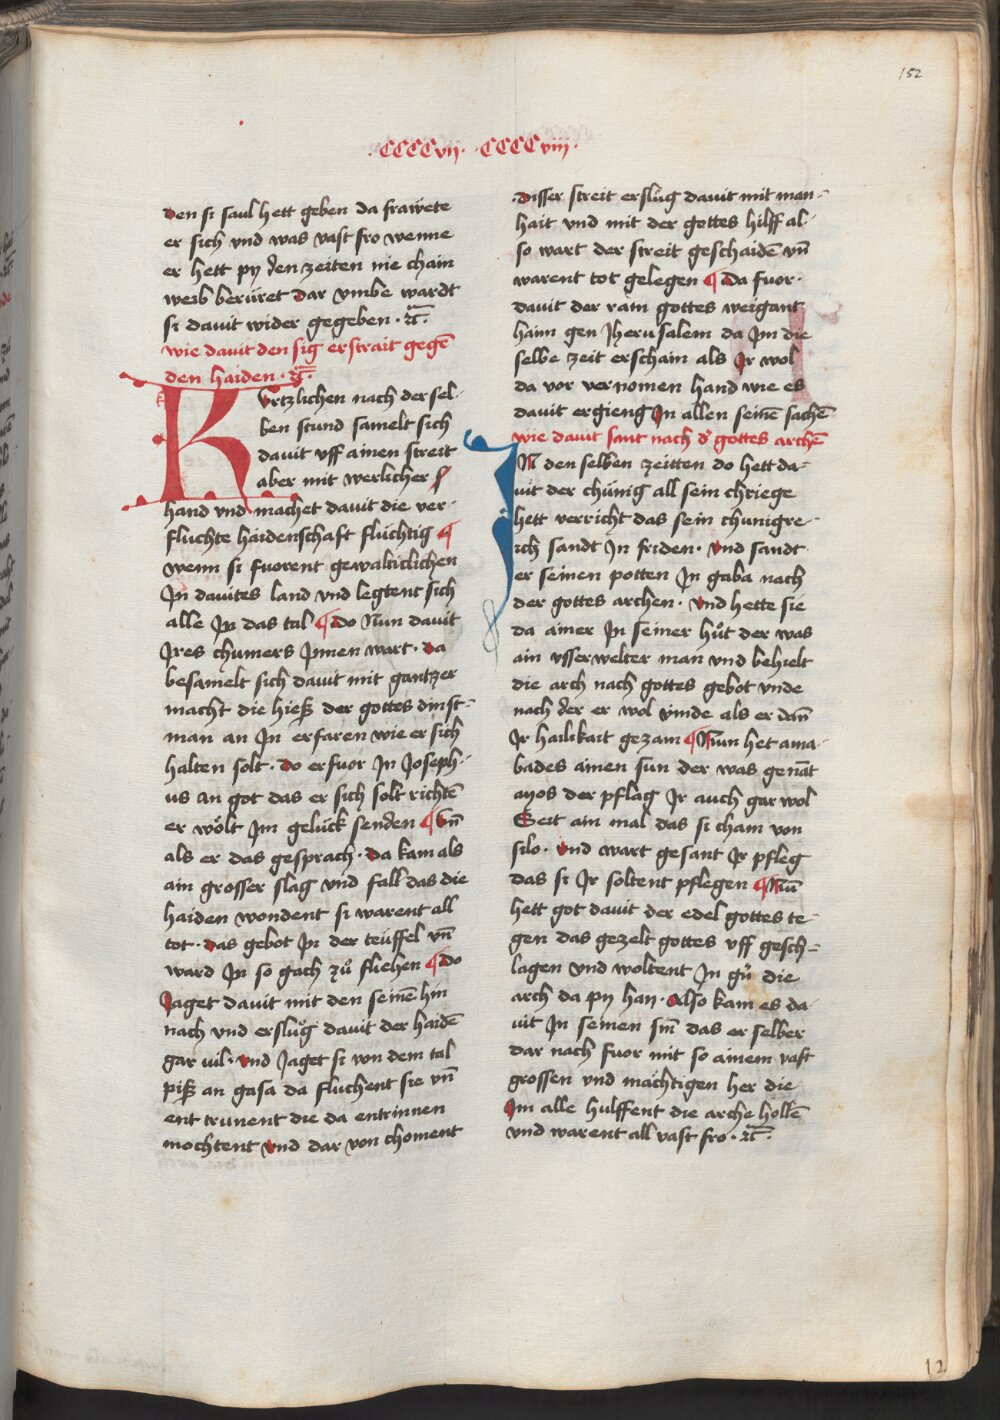 152
·CCCCvij· ·CCCCviij·
den si saul hett geben da frawete
er sich vnd was vast fro wenne
er hett py den zeiten nie chain
weib berüret dar vmbe wardt
si dauit wider gegeben · ꝛc̄ ·
wie dauit den sig erstrait gegē
den haiden · ꝛc̄ ·
Kürtzlichen nach der sel-
ben stund samelt sich
dauit vff ainen streit
aber mit werlicher
hand vnd machet dauit die ver-
fluchte haidenschaft flüchtig ¶
wenn si fuorent gewalticlichen
Jn dauites land vnd legtent sich
alle Jn das tal ¶ do Nun dauit
Jres chumers Jnnen wart · da
besamelt sich dauit mit gantzer
macht die hieß der gottes dinst-
man an Jn erfaren wie er sich
halten solt · do erfuor Jn Joseph-
us an got das er sich solt richtē
er wölt Jm gelück senden ¶ Vn̄
als er das gesprach · da kam als
ain grosser slag vnd fall das die
haiden wondent si warent all
tot · das gebot Jn der teüffel vn̄
ward Jn so gach zů fliehen ¶ do
Jaget dauit mit den seinē hin
nach vnd erslůg dauit der haidē
gar uil · vnd Jaget si von dem tal
piß an gasa da fluchent sie vn̄
ent trunent die da entrinnen
mochtent vnd dar von choment
·disser streit erslůg dauit mit man-
hait vnd mit der gottes hilff al-
so wart der streit geschaidē vn̄
warent tot gelegen ¶ da fuor
dauit der rain gottes weigant
haim gen Jherusalem da Jm die
selbe zeit erschain als Jr wol
da vor vernomen hand wie es
dauit ergieng Jn allen seinē sachē
wie dauit sant nach d' gottes archē
JN den selben zeitten do hett da-
uit der chünig all sein chriege
hett verricht das sein chunigre-
ich sandt Jn friden · vnd sandt
er seinen potten Jn gaba nach
der gottes archen · vnd hette sie
da ainer Jn seiner hůt der was
ain vsserwelter man vnd behielt
die arch nach gottes gebot vnde
nach der er wol vinde als er dan̄
Jr hailikait gezam ¶ Nun het ama-
bades ainen sun der was genāt
ayos der pflag Jr auch gar wol
Seit ain mal das si cham von
silo · vnd wart gesant Jr pfleg
das si Jr soltent pflegen ¶ Nun̄
hett got dauit der edel gottes te-
gen das gezelt gottes vff gesch-
lagen vnd woltent Jn gů die
arch da py han · Also kam es da-
uit Jn seinen sin̄ das er selber
dar nach fuor mit so ainem vast
grossen vnd mächtigen her die
Jm alle hulffent die arche hollē
vnd warent all vast fro · ꝛc̄ ·
12